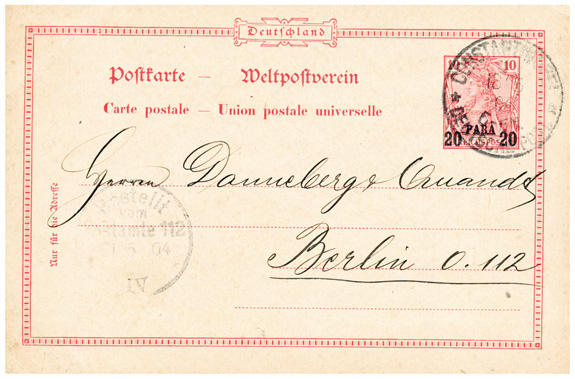 Deutschland
Postkarte — Weltpostverein
Carte postale — Union postale universelle
10
20 PARA 20
CONSTANTINOPEL
Herren Danneberg & Quandt
Berlin O. 112
Nur für die Adresse
Bestellt
vom
Postamte 112
04
IV